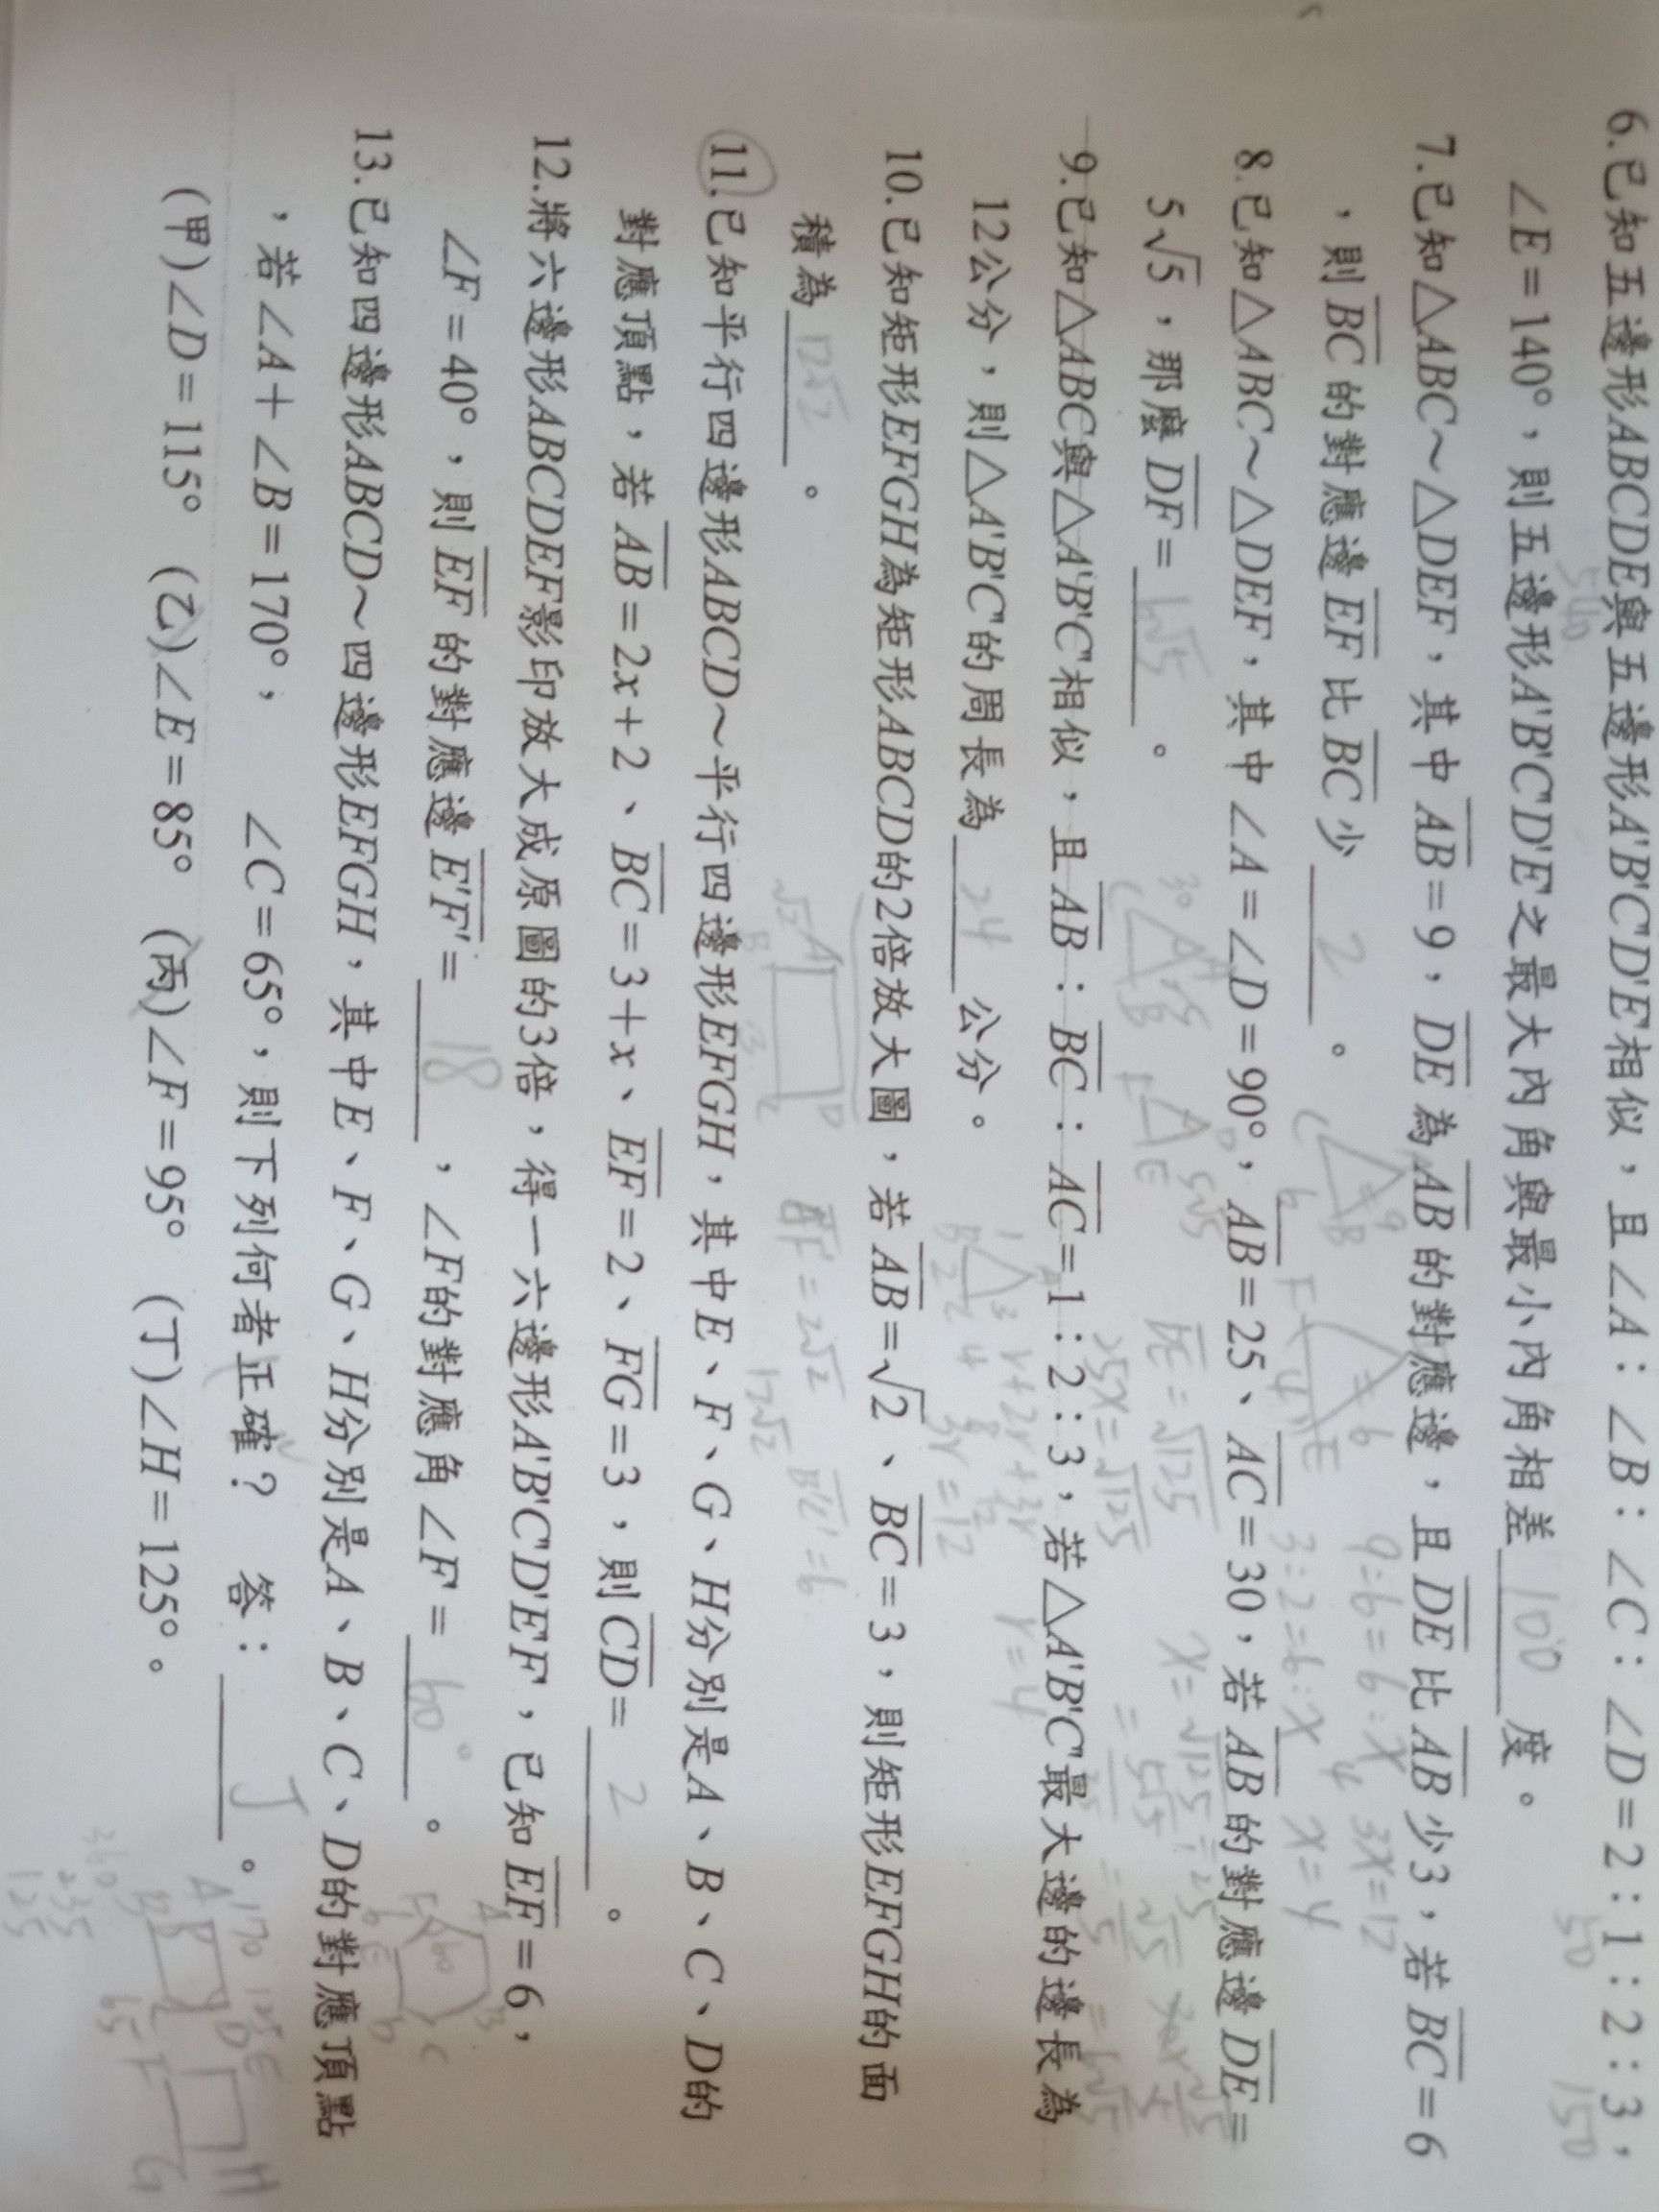 6.已知五邊形ABCDE與五邊形A'B'C'D'E'相似，且∠A：∠B：∠C：∠D=2：1：2：3，
540 50 150
∠E=140°，則五邊形A'B'C'D'E'之最大內角與最小內角相差 100 度。
7.已知△ABC～△DEF，其中AB=9，DE為AB的對應邊，且DE比AB少3，若BC=6
，則BC的對應邊EF比BC少 2 。
9:6=6:x 3x=12
3:2=6:x x=4
8.已知△ABC～△DEF，其中∠A=∠D=90°，AB=25、AC=30，若AB的對應邊DE=
5√5，那麼DF= 6√5 。
DE=√125
25x=√125
9.已知△ABC與△A'B'C'相似，且AB：BC：AC=1：2：3，若△A'B'C'最大邊的邊長為
12公分，則△A'B'C'的周長為 24 公分。
3r=12
r=4
10.已知矩形EFGH為矩形ABCD的2倍放大圖，若AB=√2、BC=3，則矩形EFGH的面
積為 12√2 。
=2√2 B'C'=6
12√2
11.已知平行四邊形ABCD～平行四邊形EFGH，其中E、F、G、H分別是A、B、C、D的
對應頂點，若AB=2x+2、BC=3+x、EF=2、FG=3，則CD= 2 。
12.將六邊形ABCDEF影印放大成原圖的3倍，得一六邊形A'B'C'D'E'F'，已知EF=6，
∠F=40°，則EF的對應邊E'F'= 18 ，∠F的對應角∠F'= 60° 。
13.已知四邊形ABCD～四邊形EFGH，其中E、F、G、H分別是A、B、C、D的對應頂點
，若∠A+∠B=170°， ∠C=65°，則下列何者正確？ 答： 丁 。
(甲)∠D=115° (乙)∠E=85° (丙)∠F=95° (丁)∠H=125°。
A 170 125 E
B C D H
65 F G
360
235
125